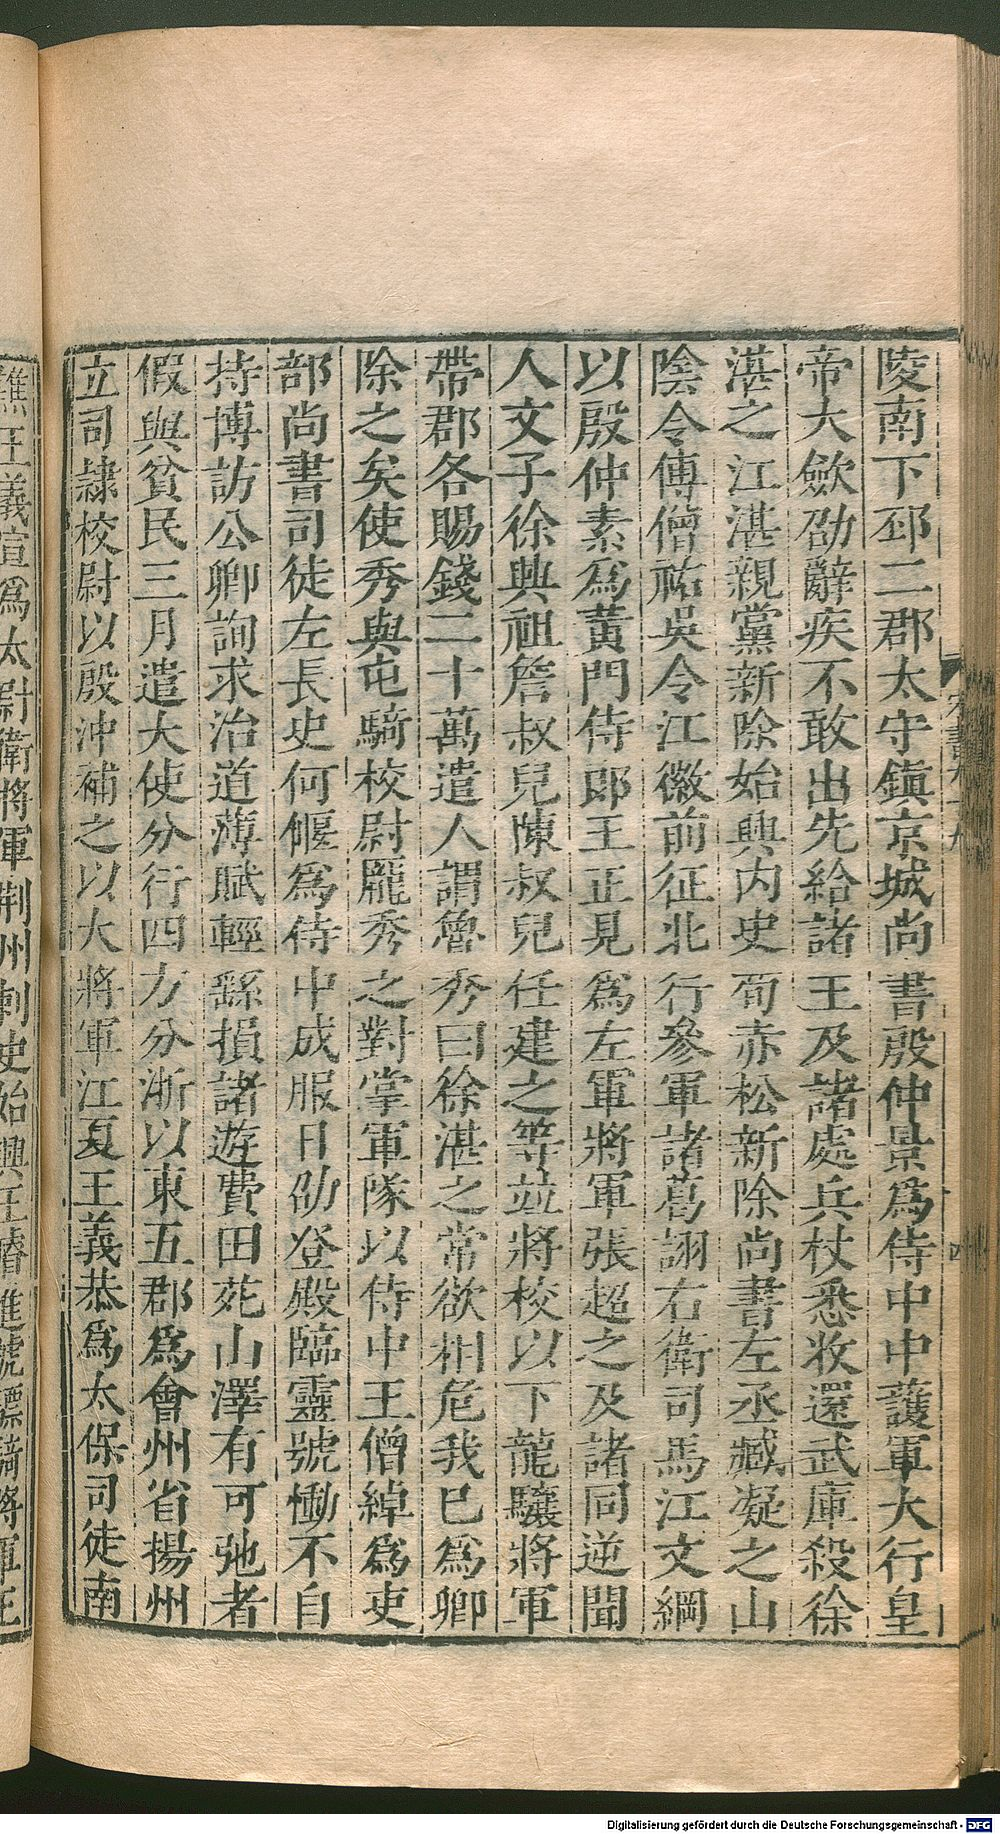 陵南下邳二郡太守鎮京城尚書殷仲景爲侍中中護軍大行皇
帝大歛劭辭疾不敢出先給諸王及諸處兵杖悉收還武庫殺徐
湛之江湛親黨新除始興内史荀赤松新除尚書左丞臧凝之山
陰令傅僧祐吳令江徽前征北行參軍諸葛詡右衛司馬江文綱
以殷仲素爲黄門侍郎王正見爲左軍將軍張超之及諸同逆聞
人文子徐興祖詹叔兒陳叔兒任建之等竝將校以下龍驤將軍
帶郡各賜錢二十萬遣人謂魯秀曰徐湛之常欲相危我已爲卿
除之矣使秀與屯騎校尉龎秀之對掌軍隊以侍中王僧綽爲吏
部尚書司徒左長史何偃爲侍中成服日劭登殿臨靈號慟不自
持博訪公卿詢求治道薄賦輕繇損諸遊費田苑山澤有可弛者
假與貧民三月遣大使分行四方分浙以東五郡爲會州省揚州
立司隷校尉以殷沖補之以大將軍江夏王義恭爲太保司徒南
譙王義宣爲太尉衛將軍荆州刺史始興王濬進號驃騎將軍王
Digitalisierung gefördert durch die Deutsche Forschungsgemeinschaft - DFG